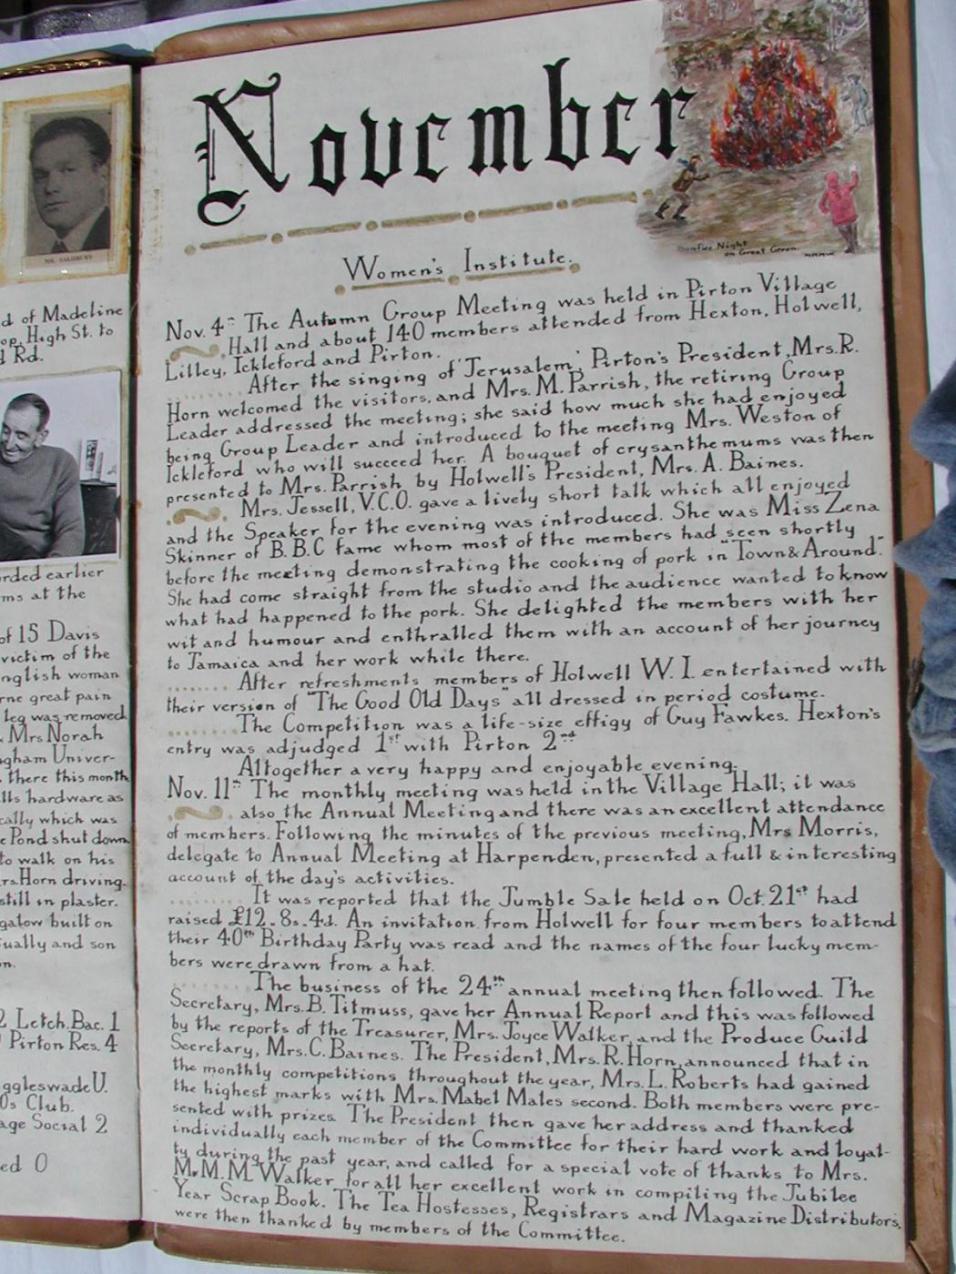 MR. SALISBURY
d of Madeline
op, High St. to
d Rd.
rded earlier
ms at the
of 15 Davis
victim of the
nglish woman
rne great pain
leg was removed
Mrs Norah
gham Univer-
there this month
lls hardware as
cally which was
e Pond shut down
to walk on his
rs. Horn driving.
still in plaster.
galow built on
ually and son
n.
2 Letch. Bac. 1
Pirton Res. 4
ggleswade U.
0s Club.
age Social 2
ed 0
November
Bonfire Night
on Great Green.
Women's Institute.
Nov. 4th The Autumn Group Meeting was held in Pirton Village
Hall and about 140 members attended from Hexton, Holwell,
Lilley, Ickleford and Pirton.
After the singing of 'Jerusalem', Pirton's President, Mrs. R.
Horn welcomed the visitors, and Mrs. M. Parrish, the retiring Group
Leader addressed the meeting; she said how much she had enjoyed
being Group Leader and introduced to the meeting Mrs. Weston of
Ickleford who will succeed her. A bouquet of crysanthemums was then
presented to Mrs. Parrish by Holwell's President, Mrs. A. Baines.
Mrs. Jessell, V.C.O. gave a lively short talk which all enjoyed
and the Speaker for the evening was introduced. She was Miss Zena
Skinner of B.B.C fame whom most of the members had seen shortly
before the meeting demonstrating the cooking of pork in "Town & Around".
She had come straight from the studio and the audience wanted to know
what had happened to the pork. She delighted the members with her
wit and humour and enthralled them with an account of her journey
to Jamaica and her work while there.
After refreshments members of Holwell W.I. entertained with
their version of "The Good Old Days" all dressed in period costume.
The Competition was a life-size effigy of Guy Fawkes. Hexton's
entry was adjudged 1st with Pirton 2nd
Altogether a very happy and enjoyable evening.
Nov. 11th The monthly meeting was held in the Village Hall; it was
also the Annual Meeting and there was an excellent attendance
of members. Following the minutes of the previous meeting, Mrs Morris,
delegate to Annual Meeting at Harpenden, presented a full & interesting
account of the day's activities.
It was reported that the Jumble Sale held on Oct. 21st had
raised £12. 8s. 4d. An invitation from Holwell for four members to attend
their 40th Birthday Party was read and the names of the four lucky mem-
bers were drawn from a hat.
The business of the 24th annual meeting then followed. The
Secretary, Mrs. B. Titmuss, gave her Annual Report and this was followed
by the reports of the Treasurer, Mrs. Joyce Walker, and the Produce Guild
Secretary, Mrs. C. Baines. The President, Mrs. R. Horn, announced that in
the monthly competitions throughout the year, Mrs. L. Roberts had gained
the highest marks with Mrs. Mabel Males second. Both members were pre-
sented with prizes. The President then gave her address and thanked
individually each member of the Committee for their hard work and loyal-
ty during the past year, and called for a special vote of thanks to Mrs.
M.M.M. Walker for all her excellent work in compiling the Jubilee
Year Scrap Book. The Tea Hostesses, Registrars and Magazine Distributors,
were then thanked by members of the Committee.